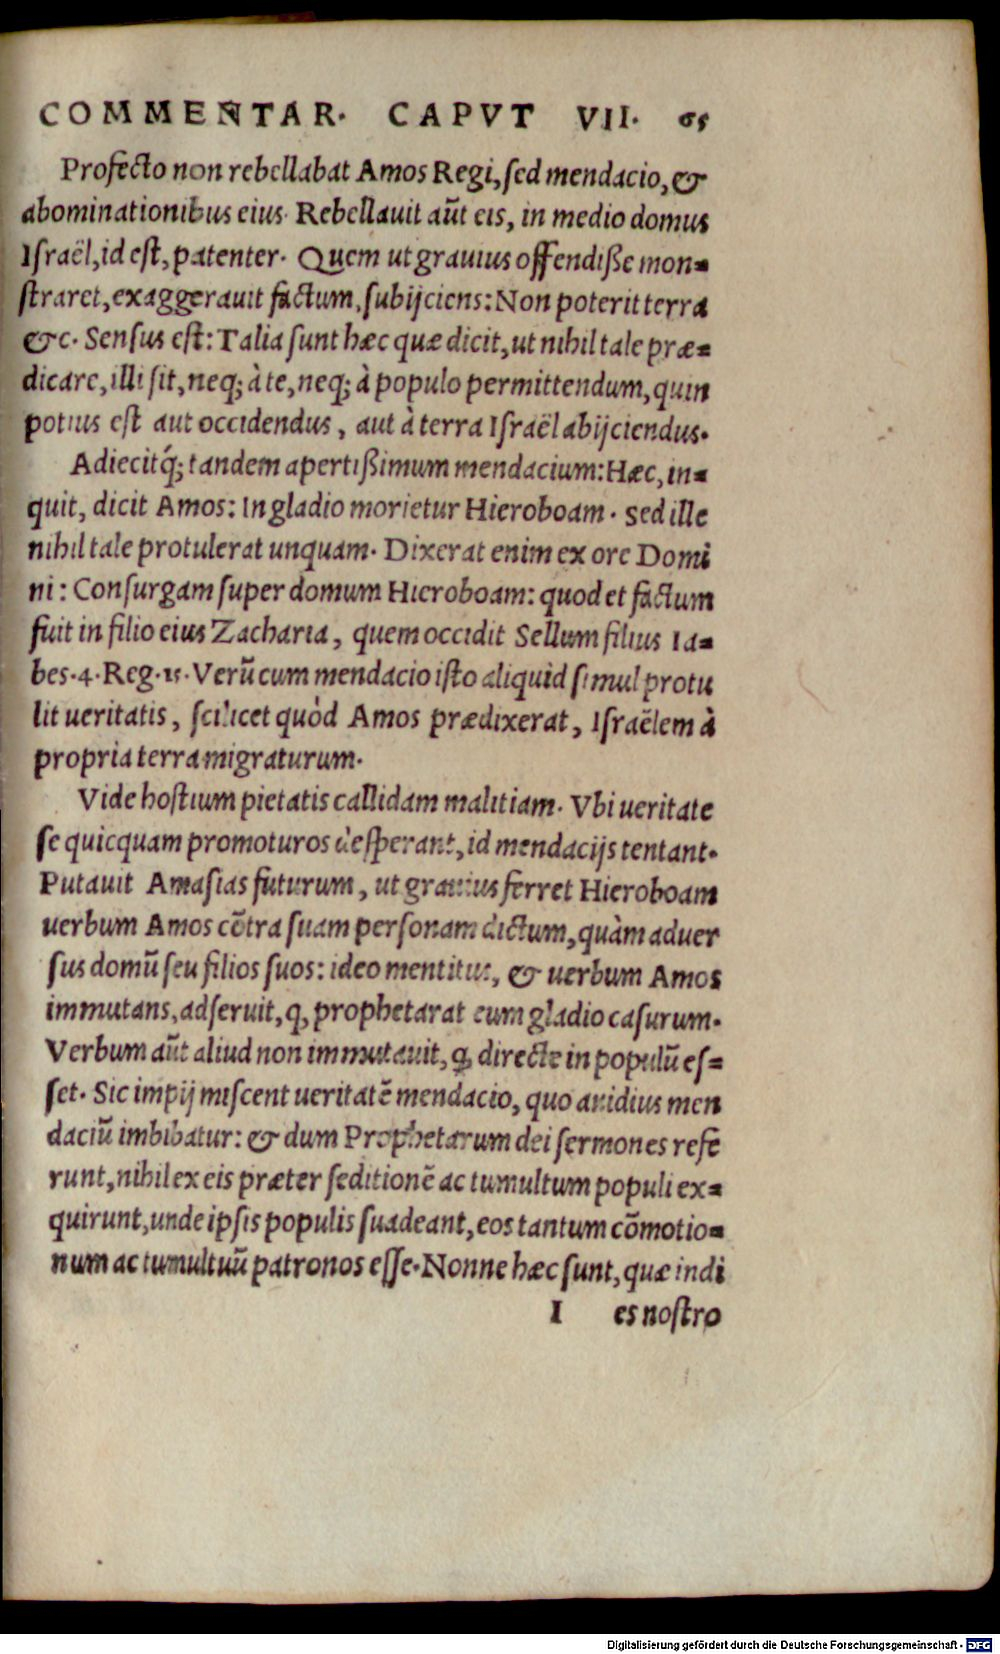 COMMENTAR. CAPVT VII. 65
Profecto non rebellabat Amos Regi, ſed mendacio, &
abominationibus eius. Rebellauit aūt eis, in medio domus
Iſraël, id eſt, patenter. Quem ut grauius offendiſſe mon=
ſtraret, exaggerauit factum, ſubijciens: Non poterit terra
&c. Senſus eſt: Talia ſunt hæc quæ dicit, ut nihil tale præ=
dicare, illi ſit, neq; à te, neq; à populo permittendum, quin
potius eſt aut occidendus, aut à terra Iſraël abijciendus.
Adiecitq́; tandem apertiſſimum mendacium: Hæc, in=
quit, dicit Amos: In gladio morietur Hieroboam. Sed ille
nihil tale protulerat unquam. Dixerat enim ex ore Domi
ni: Conſurgam ſuper domum Hieroboam: quod et factum
fuit in filio eius Zacharia, quem occidit Sellum filius Ia=
bes.4.Reg.15. Verū cum mendacio iſto aliquid ſimul protu
lit ueritatis, ſcilicet quòd Amos prædixerat, Iſraëlem à
propria terra migraturum.
Vide hoſtium pietatis callidam malitiam. Vbi ueritate
ſe quicquam promoturos deſperant, id mendacijs tentant.
Putauit Amaſias futurum, ut grauius ferret Hieroboam
uerbum Amos cōtra ſuam perſonam dictum, quàm aduer
ſus domū ſeu filios ſuos: ideo mentitus, & uerbum Amos
immutans, adſeruit, q, prophetarat eum gladio caſurum.
Verbum aūt aliud non immutauit, ꝙ directe in populū eſ=
ſet. Sic impij miſcent ueritatē mendacio, quo auidius men
daciū imbibatur: & dum Prophetarum dei ſermones refe
runt, nihil ex eis præter ſeditionē ac tumultum populi ex=
quirunt, unde ipſis populis ſuadeant, eos tantum cōmotio=
num ac tumultuū patronos eſſe. Nonne hæc ſunt, quæ indi
I es noſtro
Digitalisierung gefördert durch die Deutsche Forschungsgemeinschaft - DFG